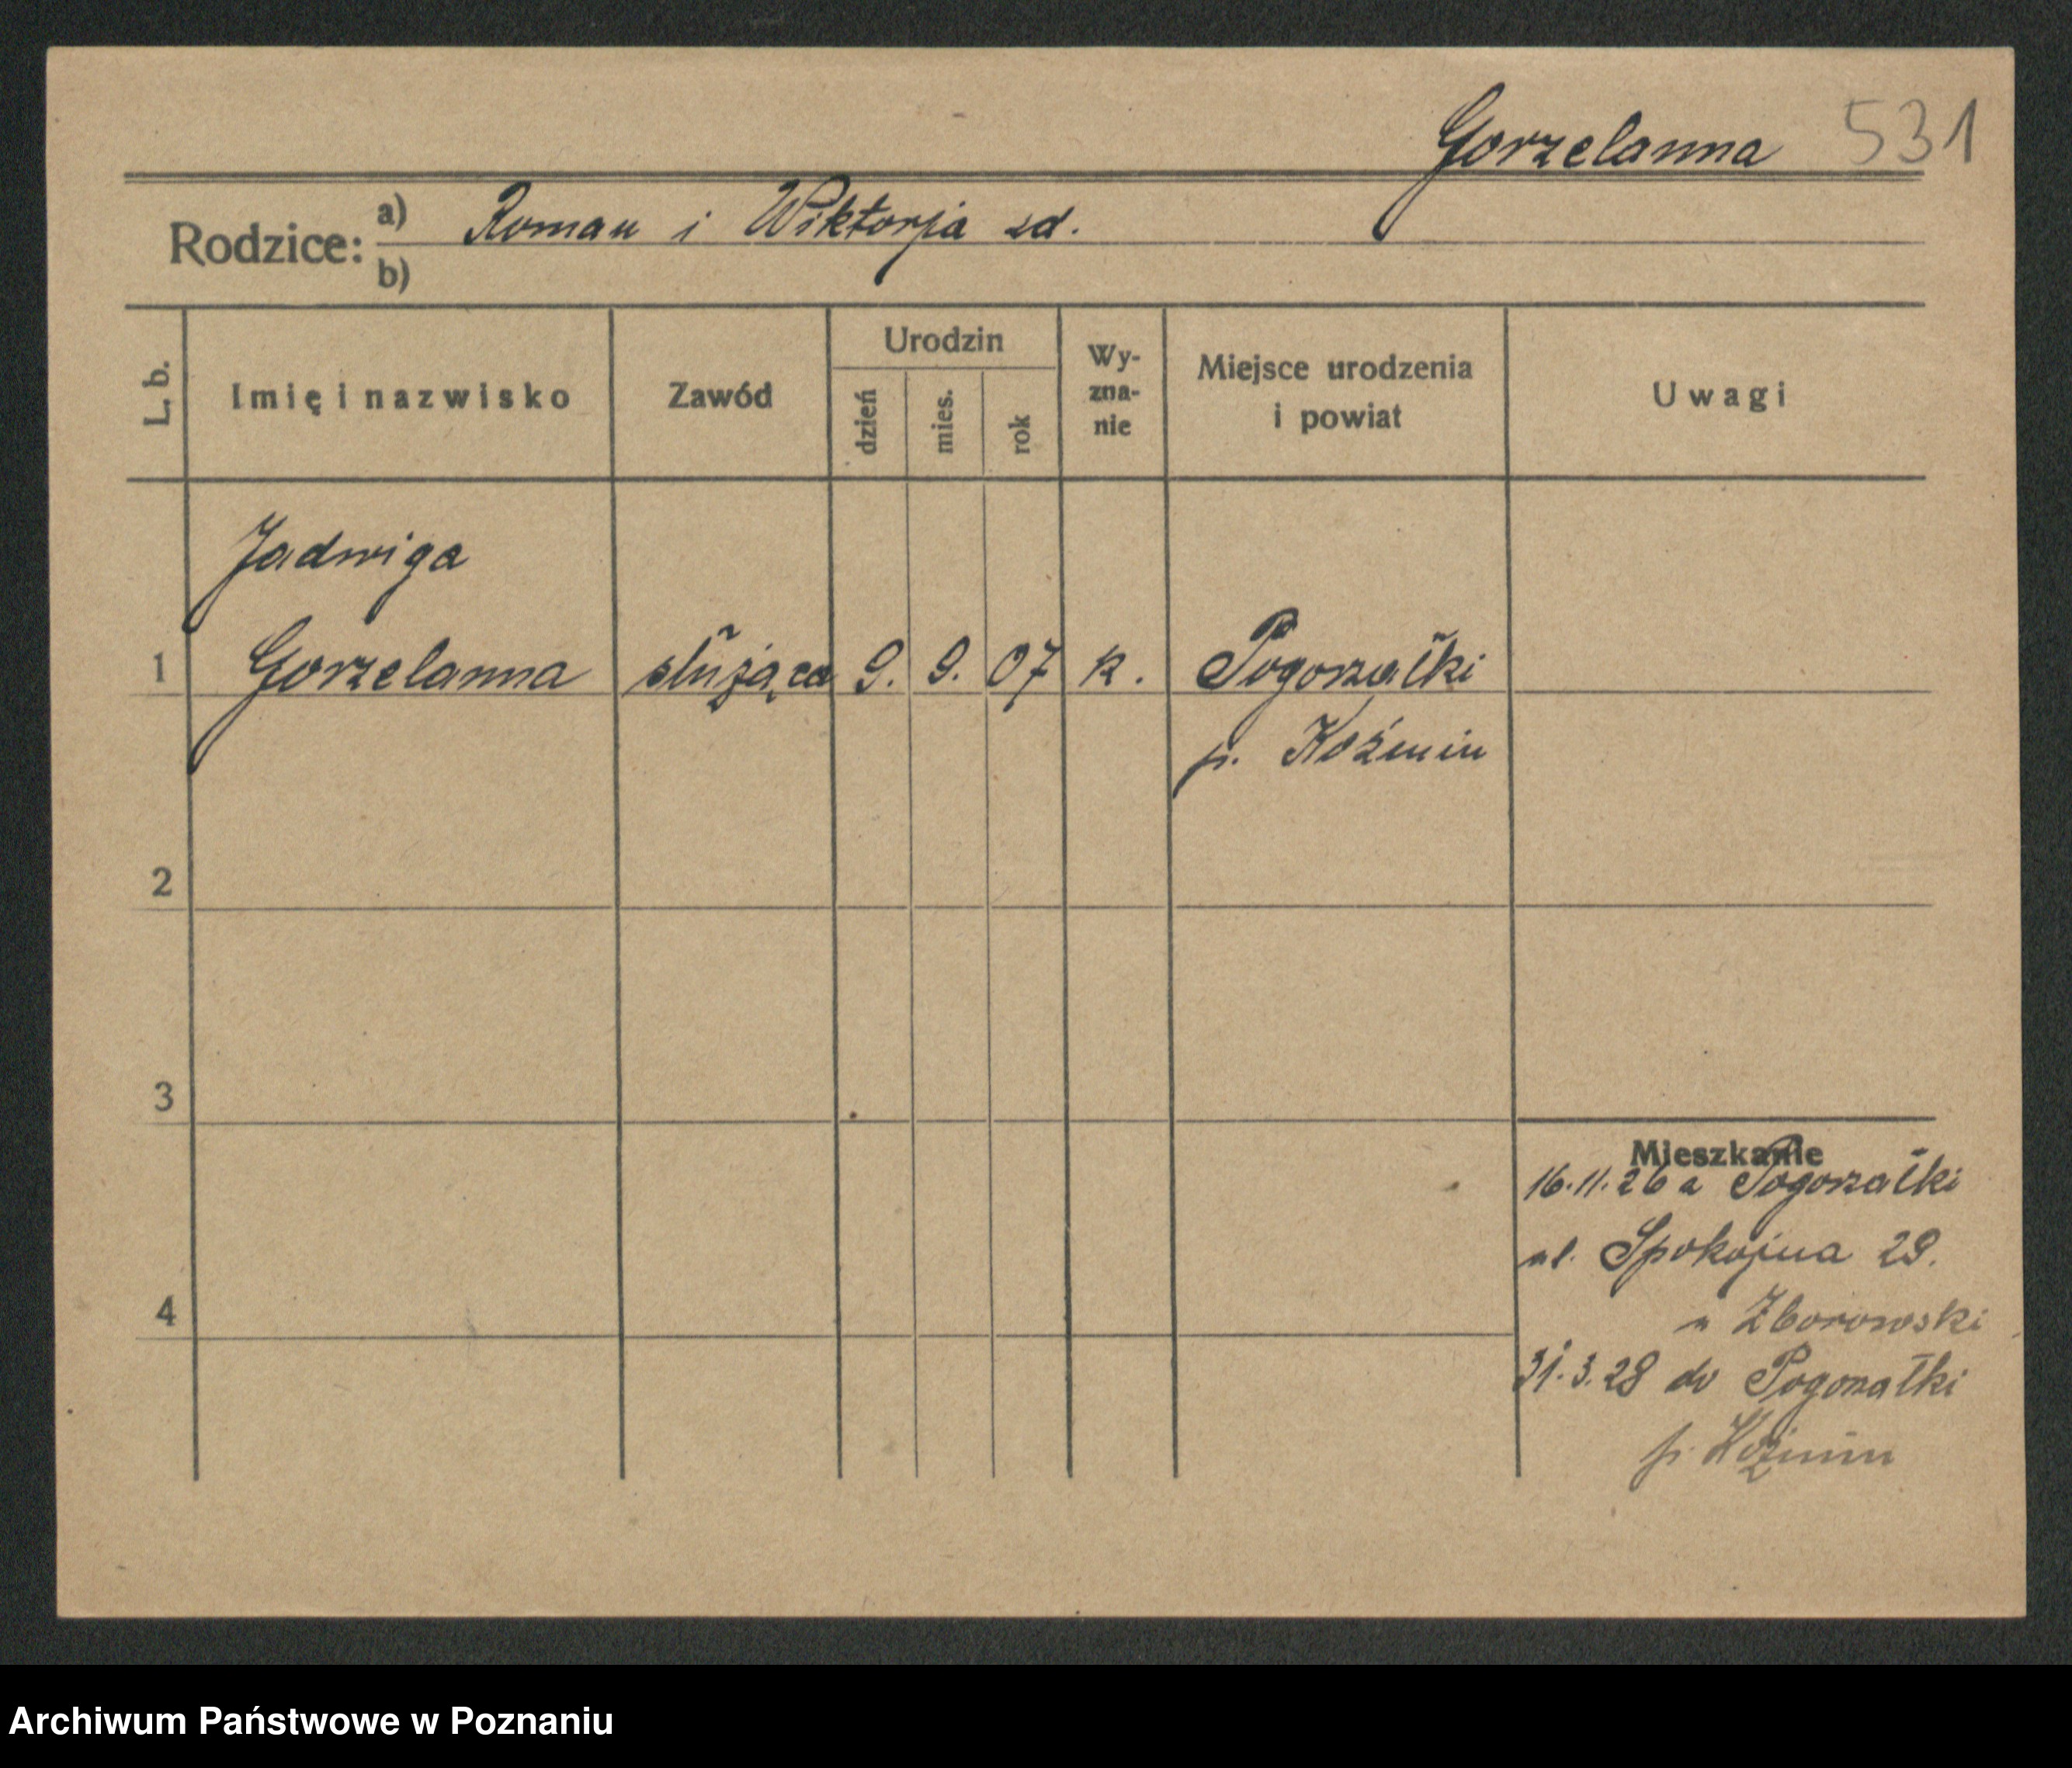 Gorzelanna 531
Rodzice: a) Roman i Wiktorja zd.
b)
L. b. Imię i nazwisko Zawód Urodzin dzień mies. rok Wy-zna-nie Miejsce urodzenia i powiat Uwagi
Jadwiga
1 Gorzelanna służąca 9. 9. 07 k. Pogorzałki
p. Koźmin
2
3
Mieszkanie
16.11.26 z Pogorzałki
ul. Spokojna 29.
4
u Zborowski
31.3.28 do Pogorzałki
p. Koźmin
Archiwum Państwowe w Poznaniu